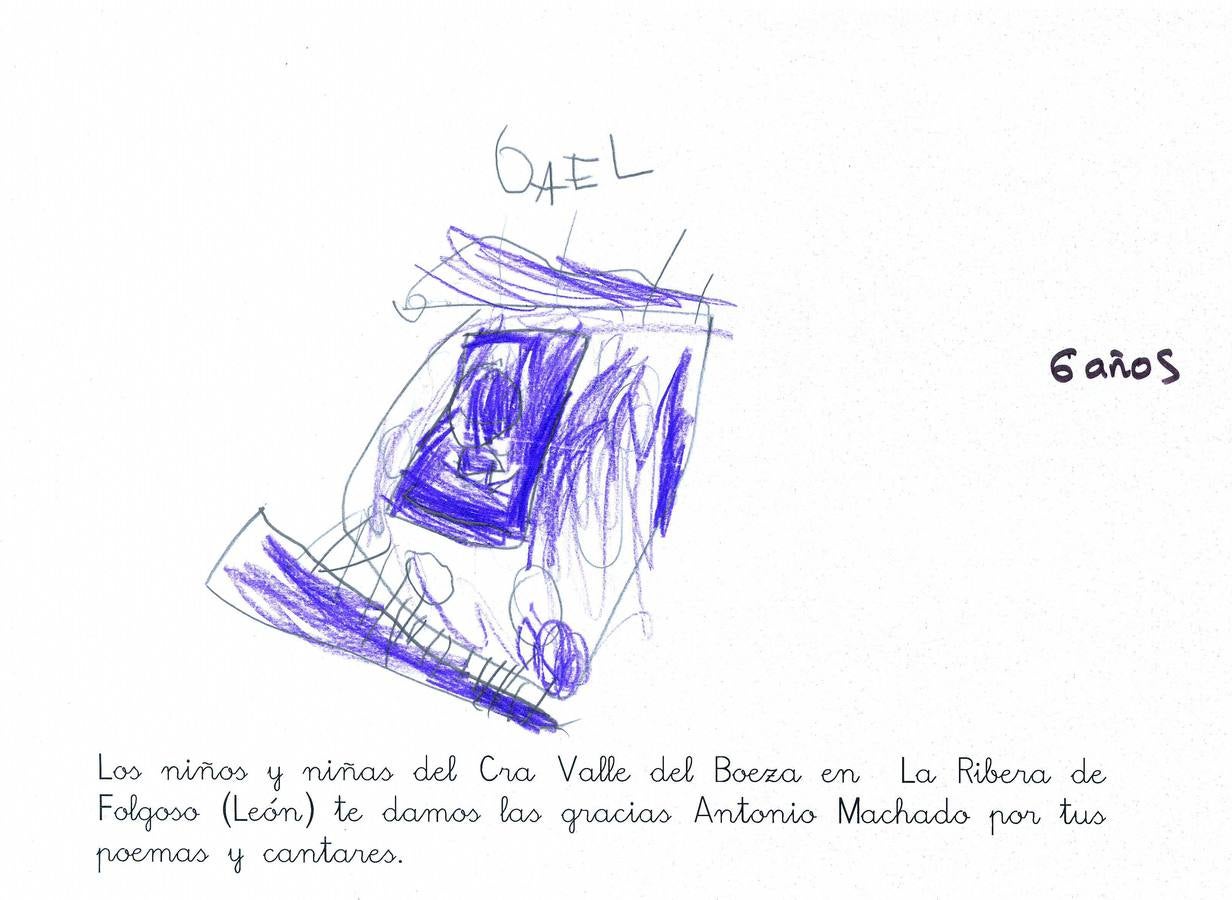 GAEL
6 años
Los niños y niñas del Cra Valle del Boeza en La Ribera de
Folgoso (León) te damos las gracias Antonio Machado por tus
poemas y cantares.